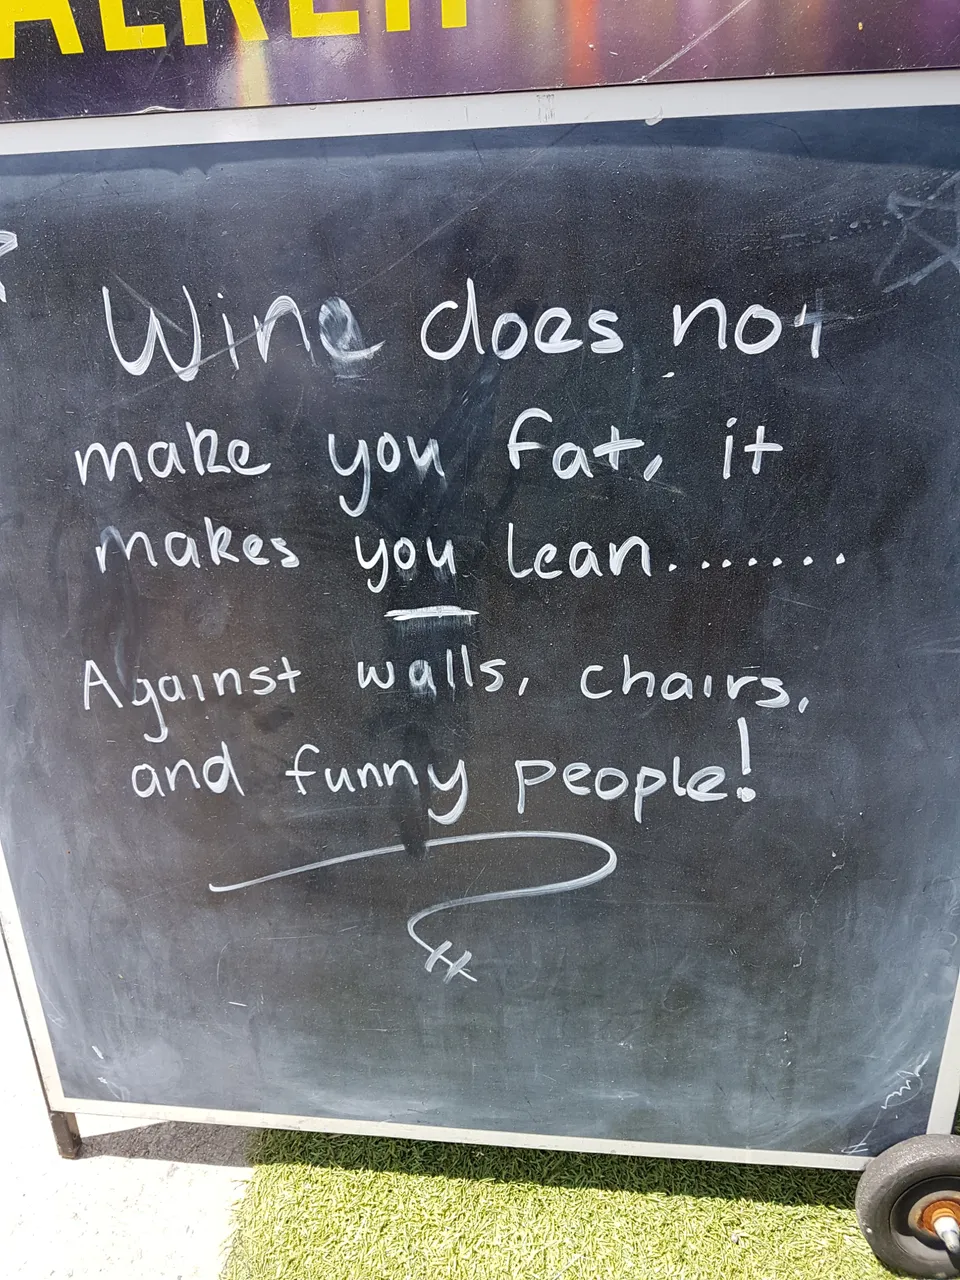 Wine does not
make you fat, it
makes you lean.......
Against walls, chairs,
and funny people!